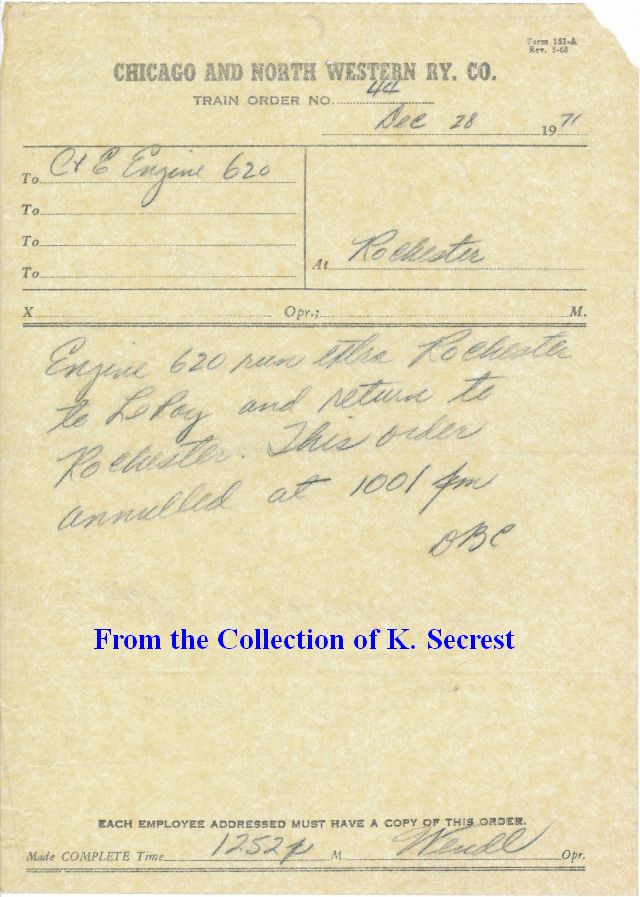 Form 151-A
Rev. 5-68
CHICAGO AND NORTH WESTERN RY. CO.
TRAIN ORDER NO. 44
Dec 28 1971
To C+E Engine 620
To
To
To
At Rochester
X Opr.; M.
Engine 620 run extra Rochester
to LeRoy and return to
Rochester. This order
annulled at 1001 pm
DBC
From the Collection of K. Secrest
EACH EMPLOYEE ADDRESSED MUST HAVE A COPY OF THIS ORDER.
Made COMPLETE Time 1252p M Wendl Opr.